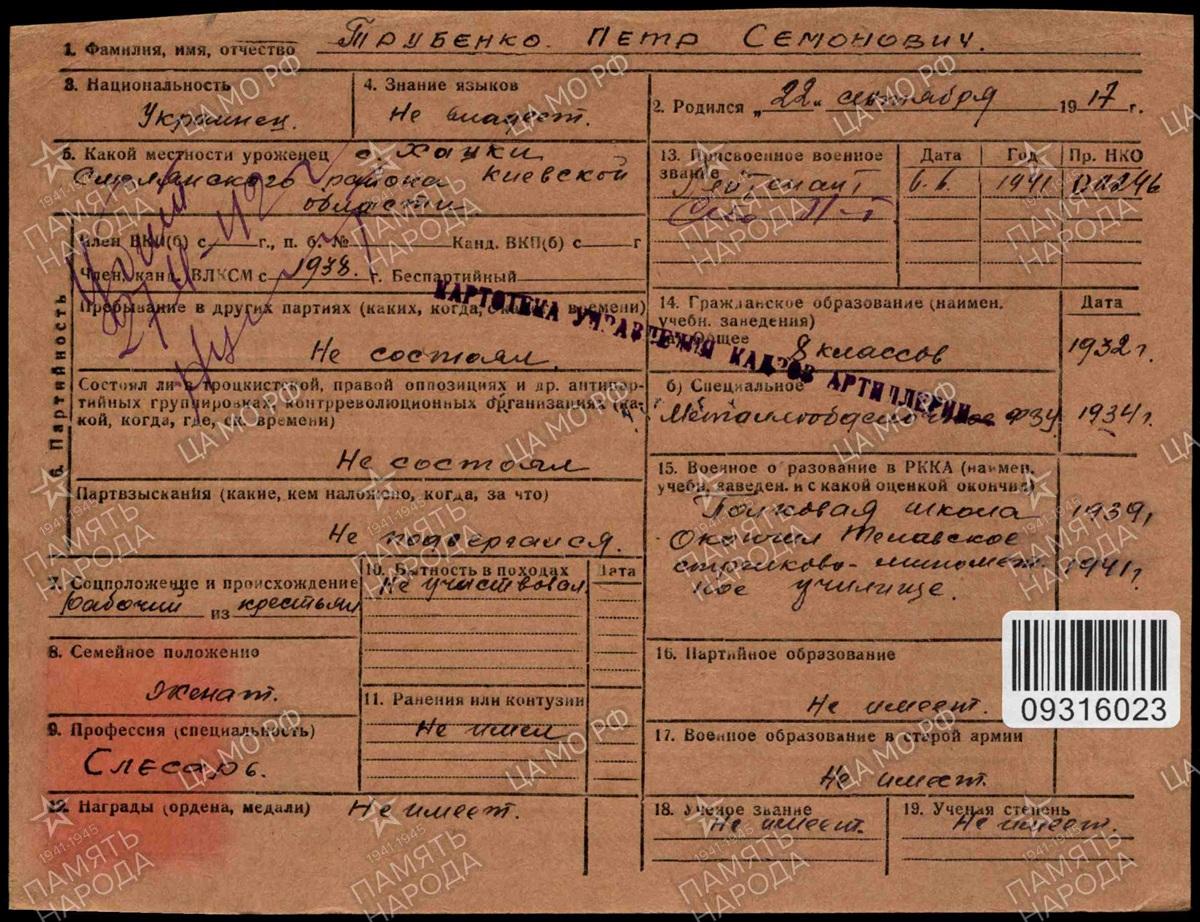 1. Фамилия, имя, отчество Трубенко. Петр Семонович.
3. Национальность
Украинец.
4. Знание языков
Не владеет.
2. Родился „22“ сентября 1917 г.
5. Какой местности уроженец с. Хацки
Смелянского района Киевской
области
13. Присвоенное военное звание
Дата Год Пр. НКО
Лейтенант 6.6. 1941 00246
6. Партийность
Член ВКП(б) с г., п. б. № Канд. ВКП(б) с г
Член, канд. ВЛКСМ с 1938. г. Беспартийный
Пребывание в других партиях (каких, когда, ск. времени)
Не состоял.
Состоял ли в троцкистской, правой оппозиции и др. антипар-
тийных группировках, контрреволюционных организациях (ка-
кой, когда, где, ск. времени)
Не состоял
Партвзыскания (какие, кем наложено, когда, за что)
Не подвергался.
КАРТОТЕКА УПРАВЛЕНИЯ КАДРОВ АРТИЛЛЕРИИ
14. Гражданское образование (наимен.
учебн. заведения)
Дата
а) Общее 8 классов 1932 г.
б) Специальное
Металлообделочное ФЗУ 1934 г.
15. Военное образование в РККА (наимен.
учебн. заведен. и с какой оценкой окончил)
Полковая школа 1939,
Окончил Телавское
стрелково-миномет- 1941 г
ное училище.
7. Соцположение и происхождение
рабочий из крестьян
10. Бытность в походах Дата
Не участвовал.
8. Семейное положение
женат.
11. Ранения или контузии
Не имел
9. Профессия (специальность)
Слесарь.
12. Награды (ордена, медали) Не имеет.
16. Партийное образование
Не имеет.
09316023
17. Военное образование в старой армии
Не имеет.
18. Ученое звание
Не имеет.
19. Ученая степень
Не имеет.
ЦА МО РФ
1941-1945
ПАМЯТЬ
НАРОДА